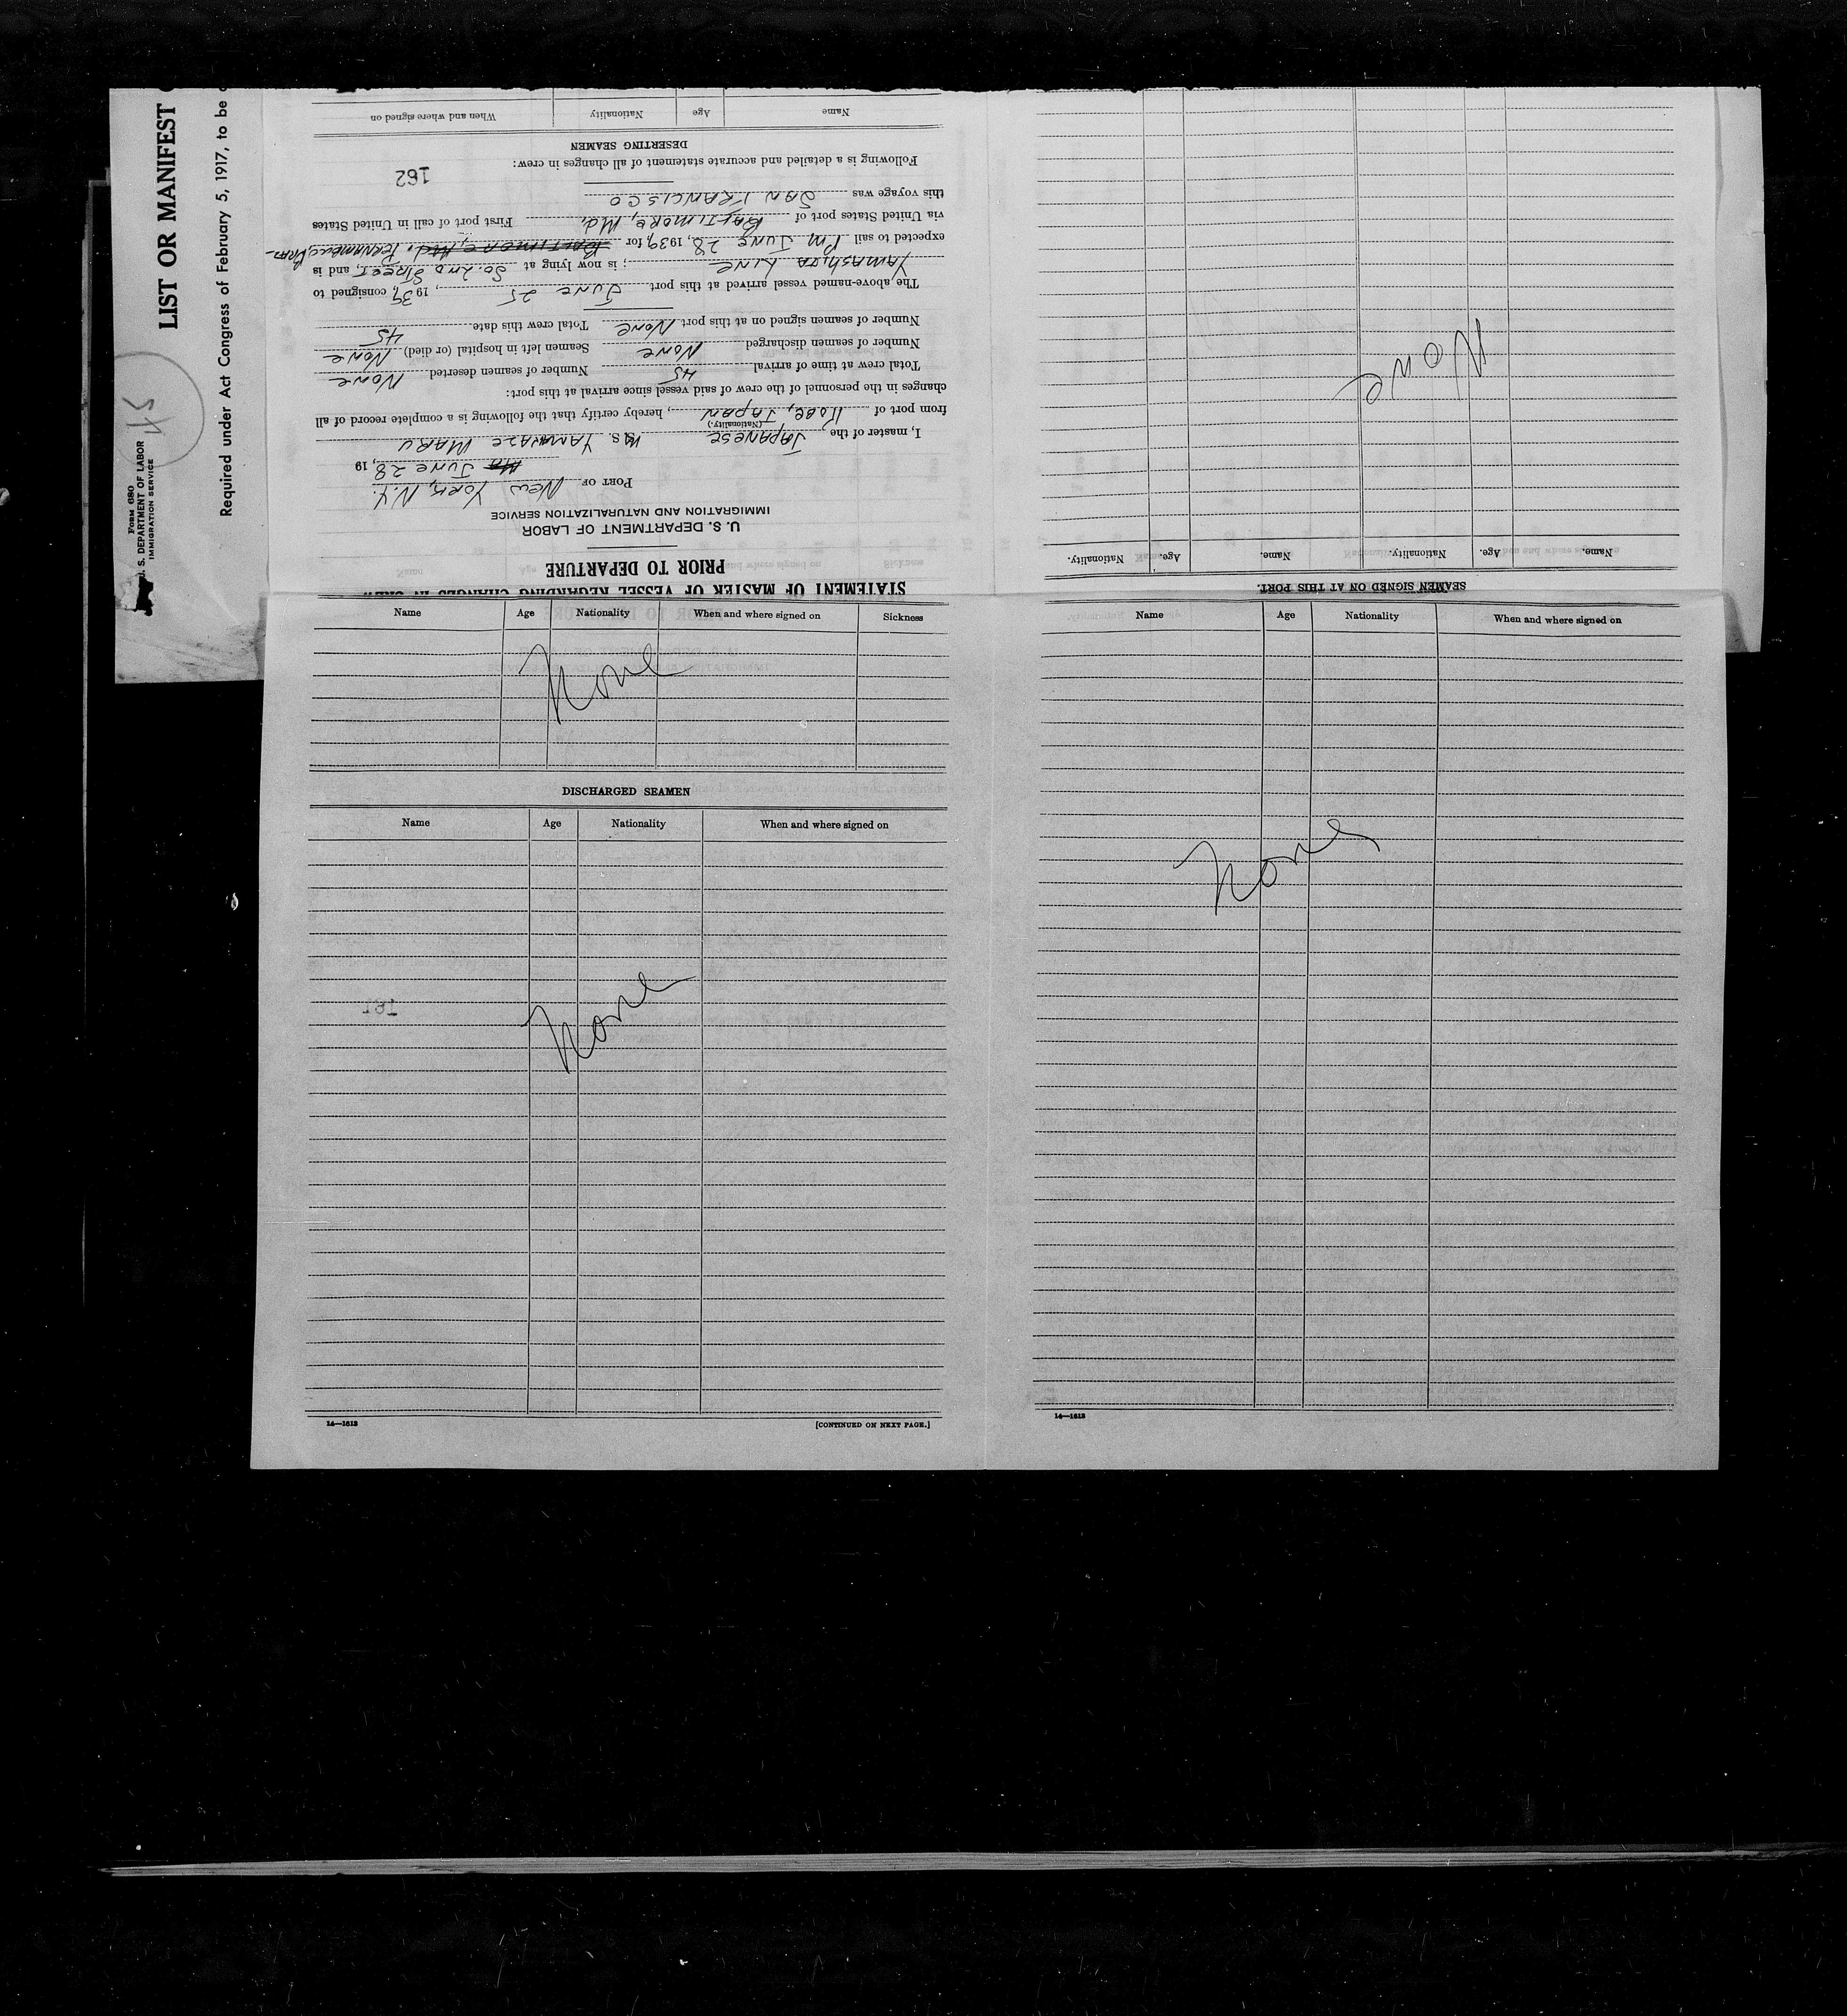 FORM 680
U. S. DEPARTMENT OF LABOR
IMMIGRATION SERVICE
45
LIST OR MANIFEST
Required under Act Congress of February 5, 1917, to be
STATEMENT OF MASTER OF VESSEL REGARDING CHANGES IN CREW
PRIOR TO DEPARTURE
U. S. DEPARTMENT OF LABOR
IMMIGRATION AND NATURALIZATION SERVICE
PORT OF NEW YORK, N.Y.
JUNE 28, 19
I, master of the JAPANESE M.S. YAMAKAZE MARU
(Nationality.)
from port of KOBE, JAPAN, hereby certify that the following is a complete record of all
changes in the personnel of the crew of said vessel since arrival at this port:
Total crew at time of arrival 45 Number of seamen deserted NONE
Number of seamen discharged NONE Seamen left in hospital (or died) NONE
Number of seamen signed on at this port NONE Total crew this date 45
The above-named vessel arrived at this port JUNE 25, 1939, consigned to
YAMASHITA LINE; is now lying at SO. 2ND STREET, and is
expected to sail PM JUNE 28, 1939, for BALTIMORE, Md. PERNAMBUCO,
via United States port of BALTIMORE, Md. First port of call in United States
this voyage was SAN FRANCISCO
162
Following is a detailed and accurate statement of all changes in crew:
DESERTING SEAMEN
Name Age Nationality When and where signed on
SEAMEN SIGNED ON AT THIS PORT.
Name. Age. Nationality. Name. Age. Nationality.
None
Name Age Nationality When and where signed on Sickness
None
DISCHARGED SEAMEN
Name Age Nationality When and where signed on
None
161
14—1613 [CONTINUED ON NEXT PAGE.]
Name Age Nationality When and where signed on
None
14—1613